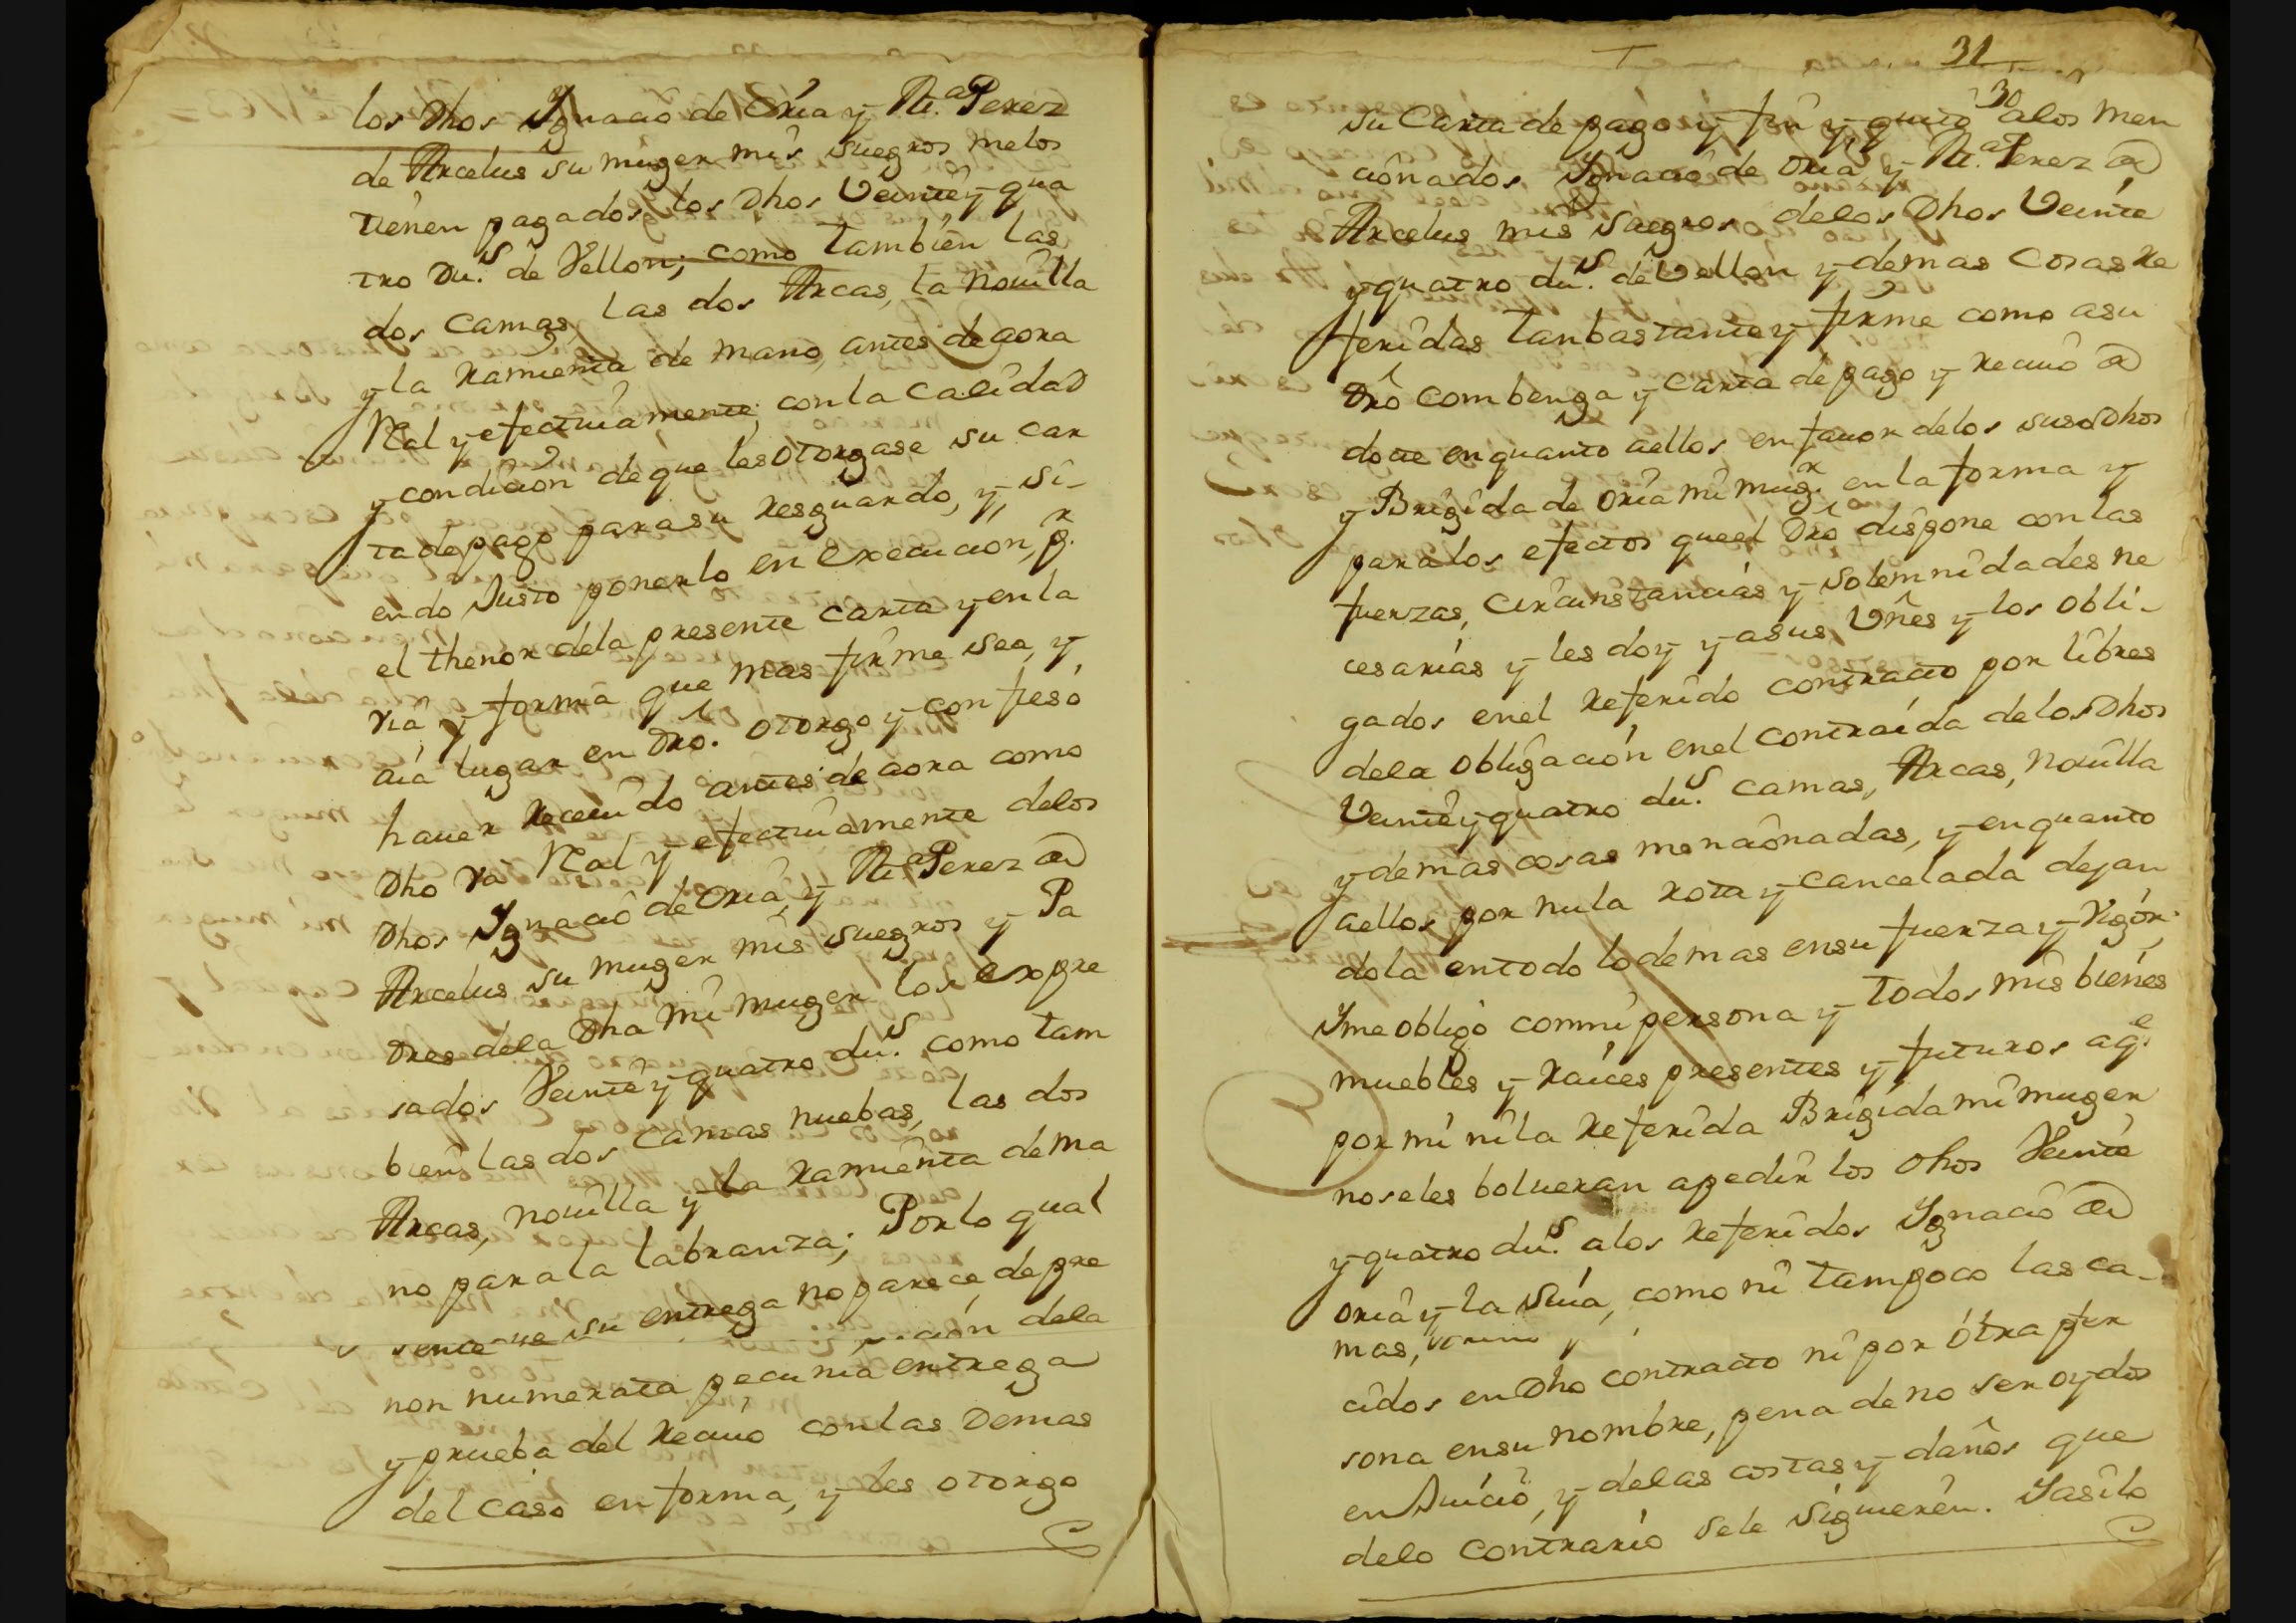 los Dhos Ygnacio de Oria y M.ª Perez
de Arcelus su muger mis suegros melos
tienen pagados los Dhos Veinte y qua
tro Du.s de Vellon; como tambien las
dos camas, las dos Arcas, la novilla
y la Ramienta de mano, antes de aora
Real y efectivamente, con la Calidad
y condicion de que les otorgase su car
ta de pago para su Resguardo, y, si-
endo Justo ponerlo en execucion, p.r
el thenor dela presente carta y en la
via y forma que mas firme sea, y
aia lugar en Dro. otorgo y confieso
haver Recevido antes de aora como
Dho va Real y efectivamente delos
Dhos Ygnacio de Oria, y M.ª Perez de
Arcelus su muger mis suegros y Pa
dres dela Dha mi muger los expre
sados Veinte y quatro du.s como tam
bien las dos camas nuebas, las dos
Arcas, novilla y la Ramienta de ma
no para la labranza; Por lo qual
su entrega no parece de pre
sente cion dela
non numerata pecunia entrega
y prueba del Recivo con las Demas
del caso en forma, y les otorgo
31
30
su Carta de pago y fin y quito alos men
cionados Ygnacio de Oria y M.ª Perez de
Arcelus mis suegros delos Dhos Veinte
y quatro du.s de Vellon y demas Cosas Re
feridas tan bastante y firme como asu
Dro combenga y Carta de pago y Recivo de
dote en quanto aellos en favor delos susoDhos
y Brigida de Oria mi mug.r en la forma y
para los efectos que el Dro dispone con las
fuerzas, circunstancias y solemnidades ne
cesarias y les doy y a sus Vnes y los obli-
gados enel Referido contracto por libres
dela obligacion enel contraida delos Dhos
Veinte y quatro du.s camas, Arcas, novilla
y demas cosas mencionadas, y en quanto
aellos por nula rota y cancelada dejan
dola en todo lo demas en su fuerza y Vigor.
Y me obligo con mi persona y todos mis bienes
muebles y Raices presentes y futuros a q.e
por mi ni la Referida Brigida mi muger
no seles bolveran a pedir los Dhos Veinte
y quatro du.s alos Referidos Ygnacio de
Oria y la Suia, como ni tampoco las ca-
mas,
cidos en Dho contracto ni por otra per
sona en su nombre, pena de no ser oydos
en Juicio, y delas costas y daños que
delo contrario sele siguieren. Y asi lo